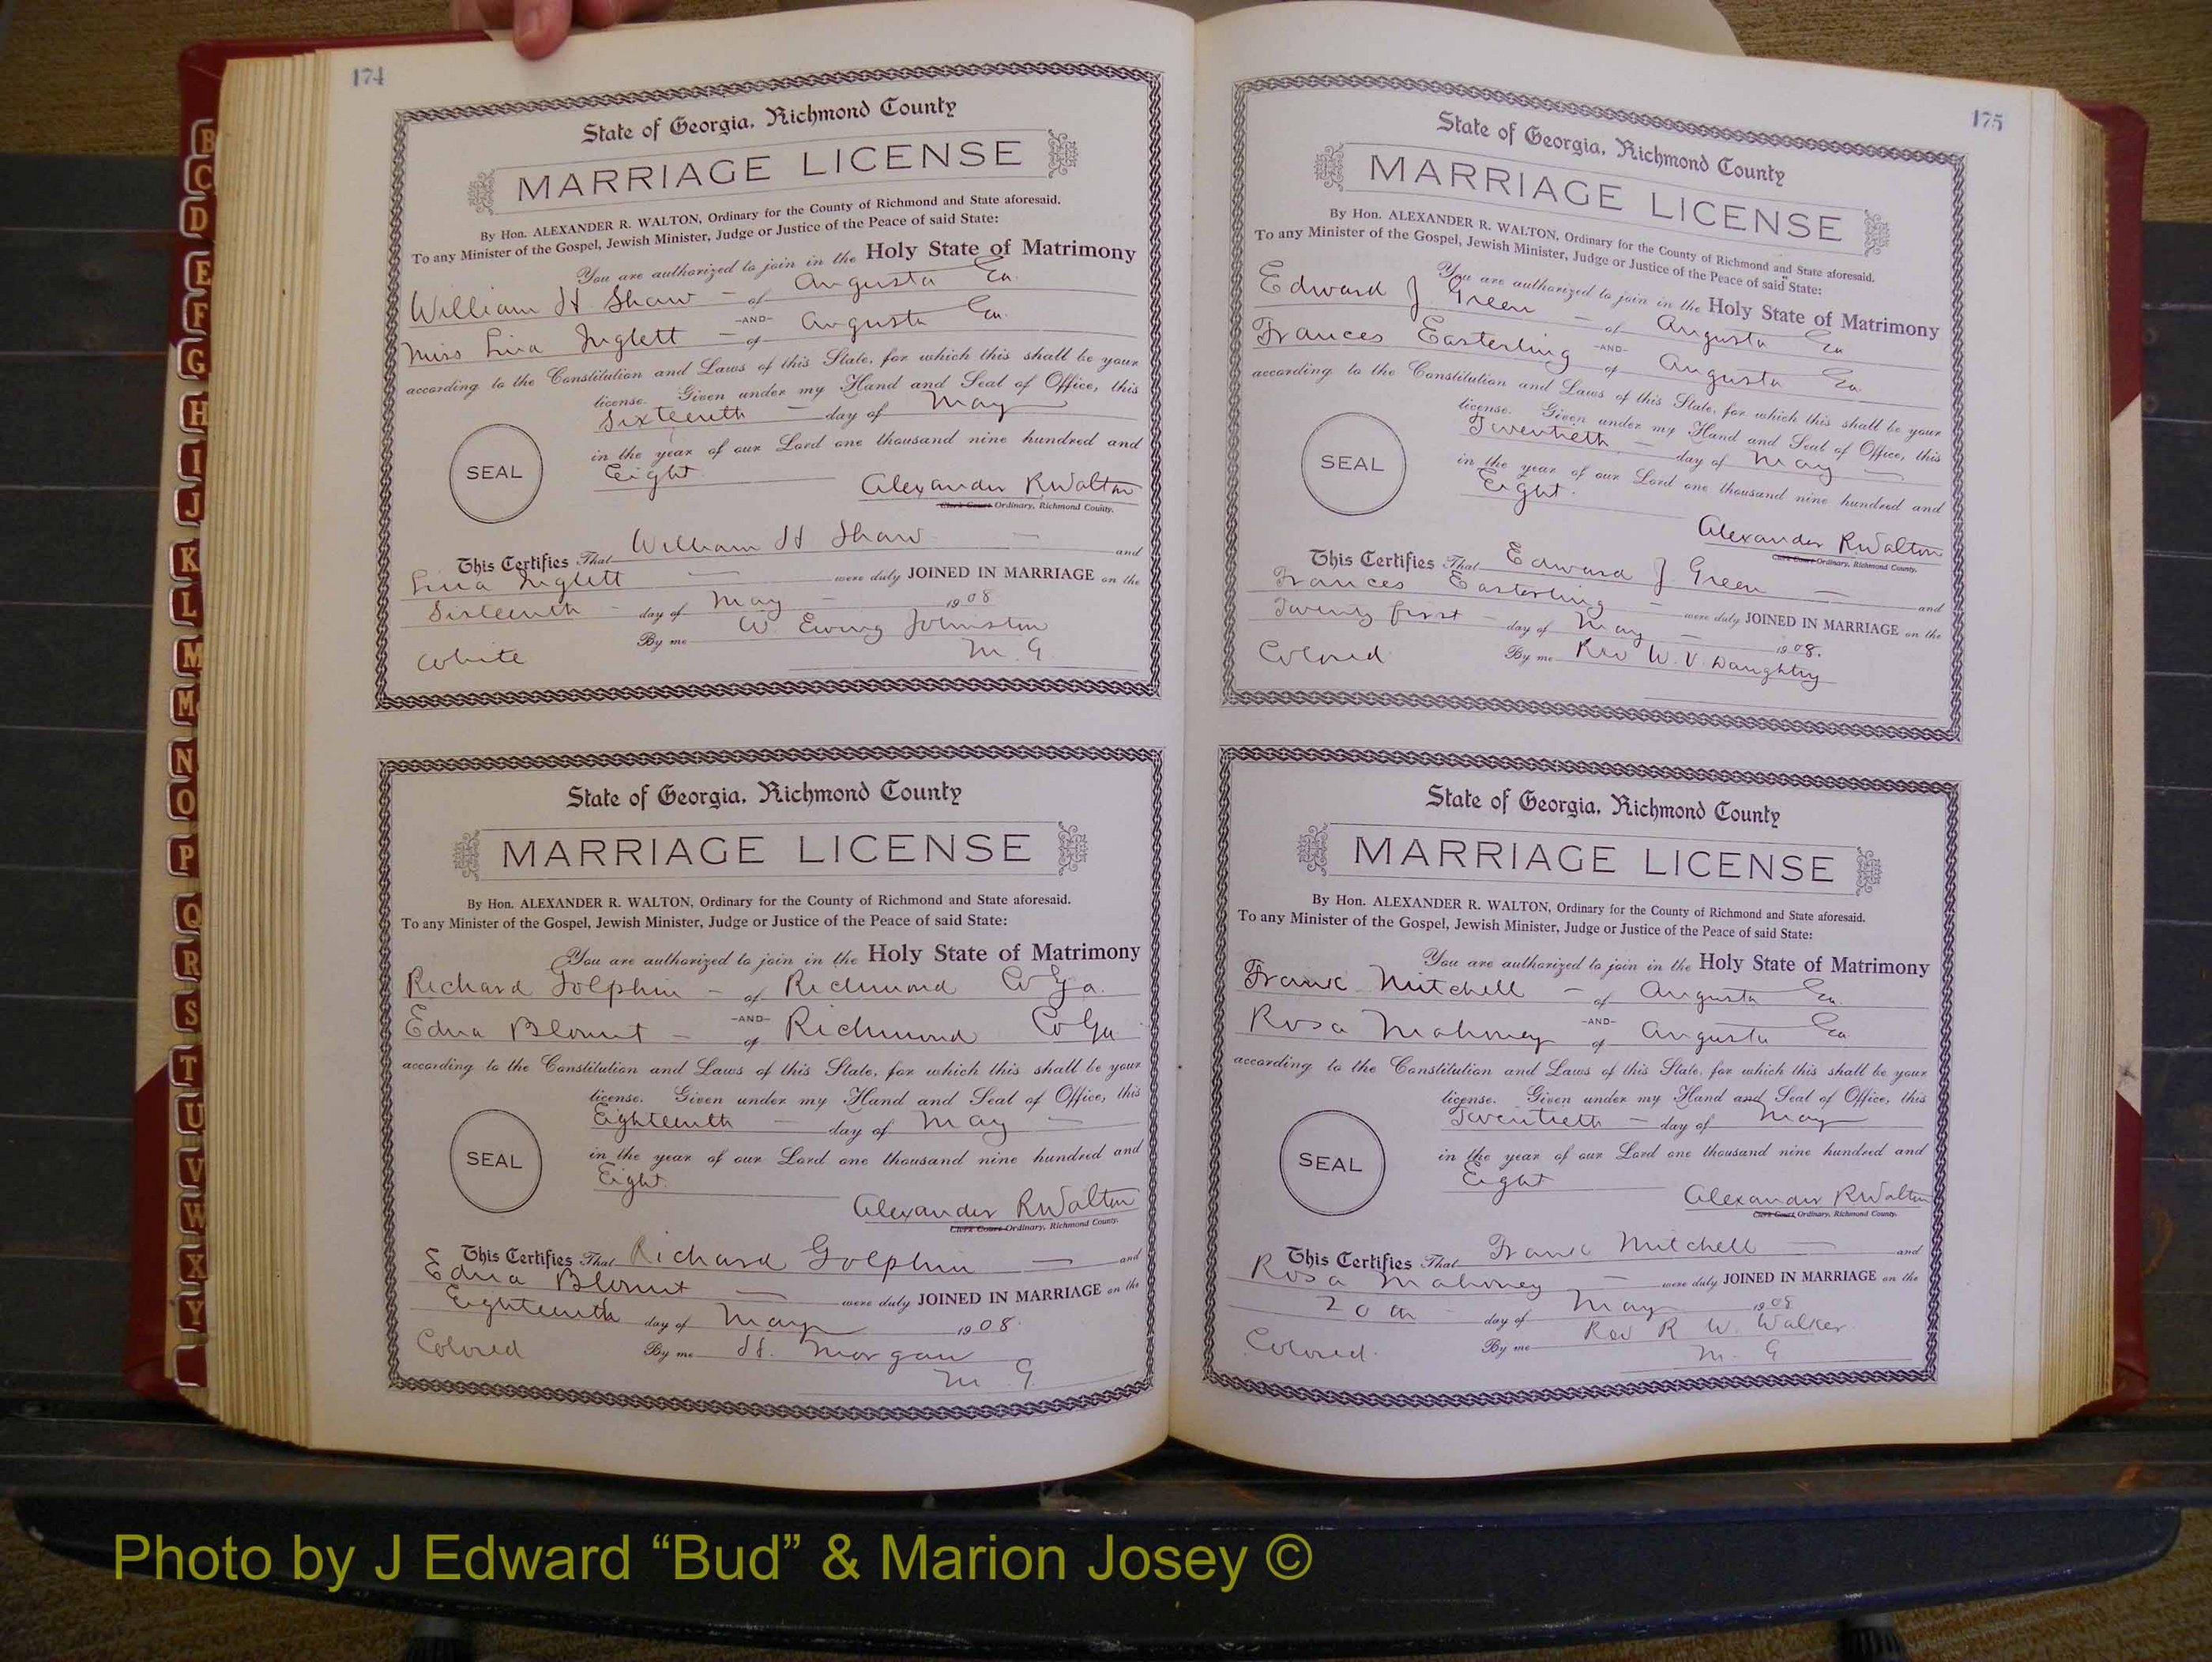 174
State of Georgia, Richmond County
MARRIAGE LICENSE
By Hon. ALEXANDER R. WALTON, Ordinary for the County of Richmond and State aforesaid.
To any Minister of the Gospel, Jewish Minister, Judge or Justice of the Peace of said State:
You are authorized to join in the Holy State of Matrimony
William H Shaw - of Augusta Ga.
-AND-
Miss Liza Inglett - of Augusta Ga.
according to the Constitution and Laws of this State, for which this shall be your
license. Given under my Hand and Seal of Office, this
Sixteenth - day of May
SEAL
in the year of our Lord one thousand nine hundred and
Eight.
Alexander R Walton
Clerk Court Ordinary, Richmond County.
This Certifies That William H Shaw - and
Liza Inglett - were duly JOINED IN MARRIAGE on the
Sixteenth - day of May - 1908
By me W. Ewing Johnston
White M. G.
State of Georgia, Richmond County
MARRIAGE LICENSE
By Hon. ALEXANDER R. WALTON, Ordinary for the County of Richmond and State aforesaid.
To any Minister of the Gospel, Jewish Minister, Judge or Justice of the Peace of said State:
You are authorized to join in the Holy State of Matrimony
Richard Golphin - of Richmond Co Ga.
-AND-
Edna Blount - of Richmond Co Ga
according to the Constitution and Laws of this State, for which this shall be your
license. Given under my Hand and Seal of Office, this
Eighteenth - day of May -
SEAL
in the year of our Lord one thousand nine hundred and
Eight.
Alexander R Walton
Clerk Court Ordinary, Richmond County.
This Certifies That Richard Golphin - and
Edna Blount - were duly JOINED IN MARRIAGE on the
Eighteenth day of May 1908
Colored By me H. Morgan
M G
175
State of Georgia, Richmond County
MARRIAGE LICENSE
By Hon. ALEXANDER R. WALTON, Ordinary for the County of Richmond and State aforesaid.
To any Minister of the Gospel, Jewish Minister, Judge or Justice of the Peace of said State:
You are authorized to join in the Holy State of Matrimony
Edward J Green - of Augusta Ga
-AND-
Frances Easterling of Augusta Ga.
according to the Constitution and Laws of this State, for which this shall be your
license. Given under my Hand and Seal of Office, this
Twentieth - day of May -
SEAL
in the year of our Lord one thousand nine hundred and
Eight.
Alexander R Walton
Clerk Court Ordinary, Richmond County.
This Certifies That Edward J Green - and
Frances Easterling - were duly JOINED IN MARRIAGE on the
Twenty first - day of May - 1908.
Colored By me Rev W. V. Daughtry
State of Georgia, Richmond County
MARRIAGE LICENSE
By Hon. ALEXANDER R. WALTON, Ordinary for the County of Richmond and State aforesaid.
To any Minister of the Gospel, Jewish Minister, Judge or Justice of the Peace of said State:
You are authorized to join in the Holy State of Matrimony
Frank Mitchell - of Augusta Ga.
-AND-
Rosa Mahoney of Augusta Ga
according to the Constitution and Laws of this State, for which this shall be your
license. Given under my Hand and Seal of Office, this
Twentieth - day of May
SEAL
in the year of our Lord one thousand nine hundred and
Eight
Alexander R Walton
Clerk Court Ordinary, Richmond County.
This Certifies That Frank Mitchell - and
Rosa Mahoney - were duly JOINED IN MARRIAGE on the
20th day of May 1908
Colored. By me Rev R. W. Walker
M. G
B
C
D
E
F
G
H
I
J
K
L
M
Mc
N
O
P
Q
R
S
T
U
V
W
X
Y
Photo by J Edward “Bud” & Marion Josey ©